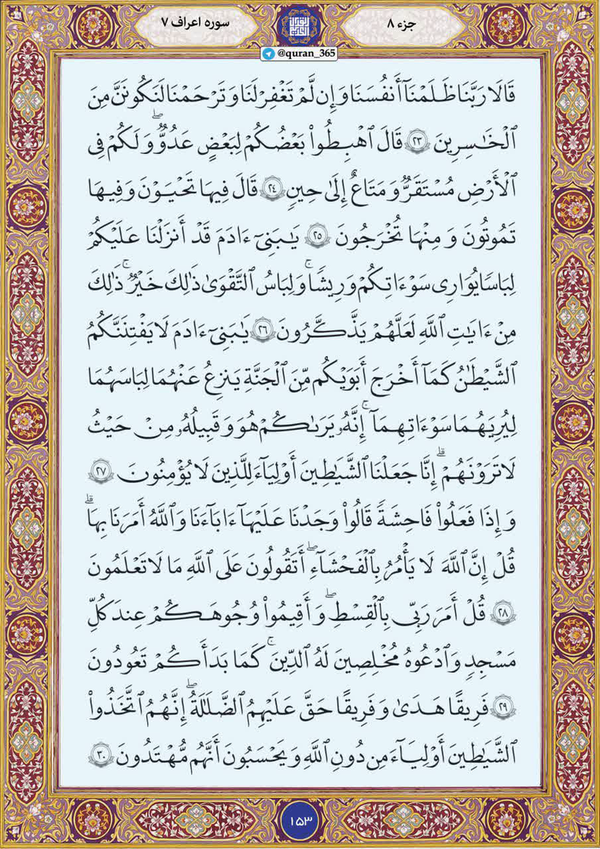 جزء ۸
سوره اعراف ۷
@quran_365
قَالَا رَبَّنَا ظَلَمْنَآ أَنفُسَنَا وَإِن لَّمْ تَغْفِرْ لَنَا وَتَرْحَمْنَا لَنَكُونَنَّ مِنَ
ٱلْخَٰسِرِينَ ٢٣ قَالَ ٱهْبِطُوا۟ بَعْضُكُمْ لِبَعْضٍ عَدُوٌّۖ وَلَكُمْ فِى
ٱلْأَرْضِ مُسْتَقَرٌّ وَمَتَاعٌ إِلَىٰ حِينٍ ٢٤ قَالَ فِيهَا تَحْيَوْنَ وَفِيهَا
تَمُوتُونَ وَمِنْهَا تُخْرَجُونَ ٢٥ يَٰبَنِىٓ ءَادَمَ قَدْ أَنزَلْنَا عَلَيْكُمْ
لِبَاسًا يُوَارِى سَوْءَاتِكُمْ وَرِيشًاۖ وَلِبَاسُ ٱلتَّقْوَىٰ ذَٰلِكَ خَيْرٌۚ ذَٰلِكَ
مِنْ ءَايَٰتِ ٱللَّهِ لَعَلَّهُمْ يَذَّكَّرُونَ ٢٦ يَٰبَنِىٓ ءَادَمَ لَا يَفْتِنَنَّكُمُ
ٱلشَّيْطَٰنُ كَمَآ أَخْرَجَ أَبَوَيْكُم مِّنَ ٱلْجَنَّةِ يَنزِعُ عَنْهُمَا لِبَاسَهُمَا
لِيُرِيَهُمَا سَوْءَاتِهِمَآۚ إِنَّهُۥ يَرَىٰكُمْ هُوَ وَقَبِيلُهُۥ مِنْ حَيْثُ
لَا تَرَوْنَهُمْۗ إِنَّا جَعَلْنَا ٱلشَّيَٰطِينَ أَوْلِيَآءَ لِلَّذِينَ لَا يُؤْمِنُونَ ٢٧
وَإِذَا فَعَلُوا۟ فَٰحِشَةً قَالُوا۟ وَجَدْنَا عَلَيْهَآ ءَابَآءَنَا وَٱللَّهُ أَمَرَنَا بِهَاۗ
قُلْ إِنَّ ٱللَّهَ لَا يَأْمُرُ بِٱلْفَحْشَآءِۖ أَتَقُولُونَ عَلَى ٱللَّهِ مَا لَا تَعْلَمُونَ
٢٨ قُلْ أَمَرَ رَبِّى بِٱلْقِسْطِۖ وَأَقِيمُوا۟ وُجُوهَكُمْ عِندَ كُلِّ
مَسْجِدٍ وَٱدْعُوهُ مُخْلِصِينَ لَهُ ٱلدِّينَۚ كَمَا بَدَأَكُمْ تَعُودُونَ
٢٩ فَرِيقًا هَدَىٰ وَفَرِيقًا حَقَّ عَلَيْهِمُ ٱلضَّلَٰلَةُۗ إِنَّهُمُ ٱتَّخَذُوا۟
ٱلشَّيَٰطِينَ أَوْلِيَآءَ مِن دُونِ ٱللَّهِ وَيَحْسَبُونَ أَنَّهُم مُّهْتَدُونَ ٣٠
۱۵۳